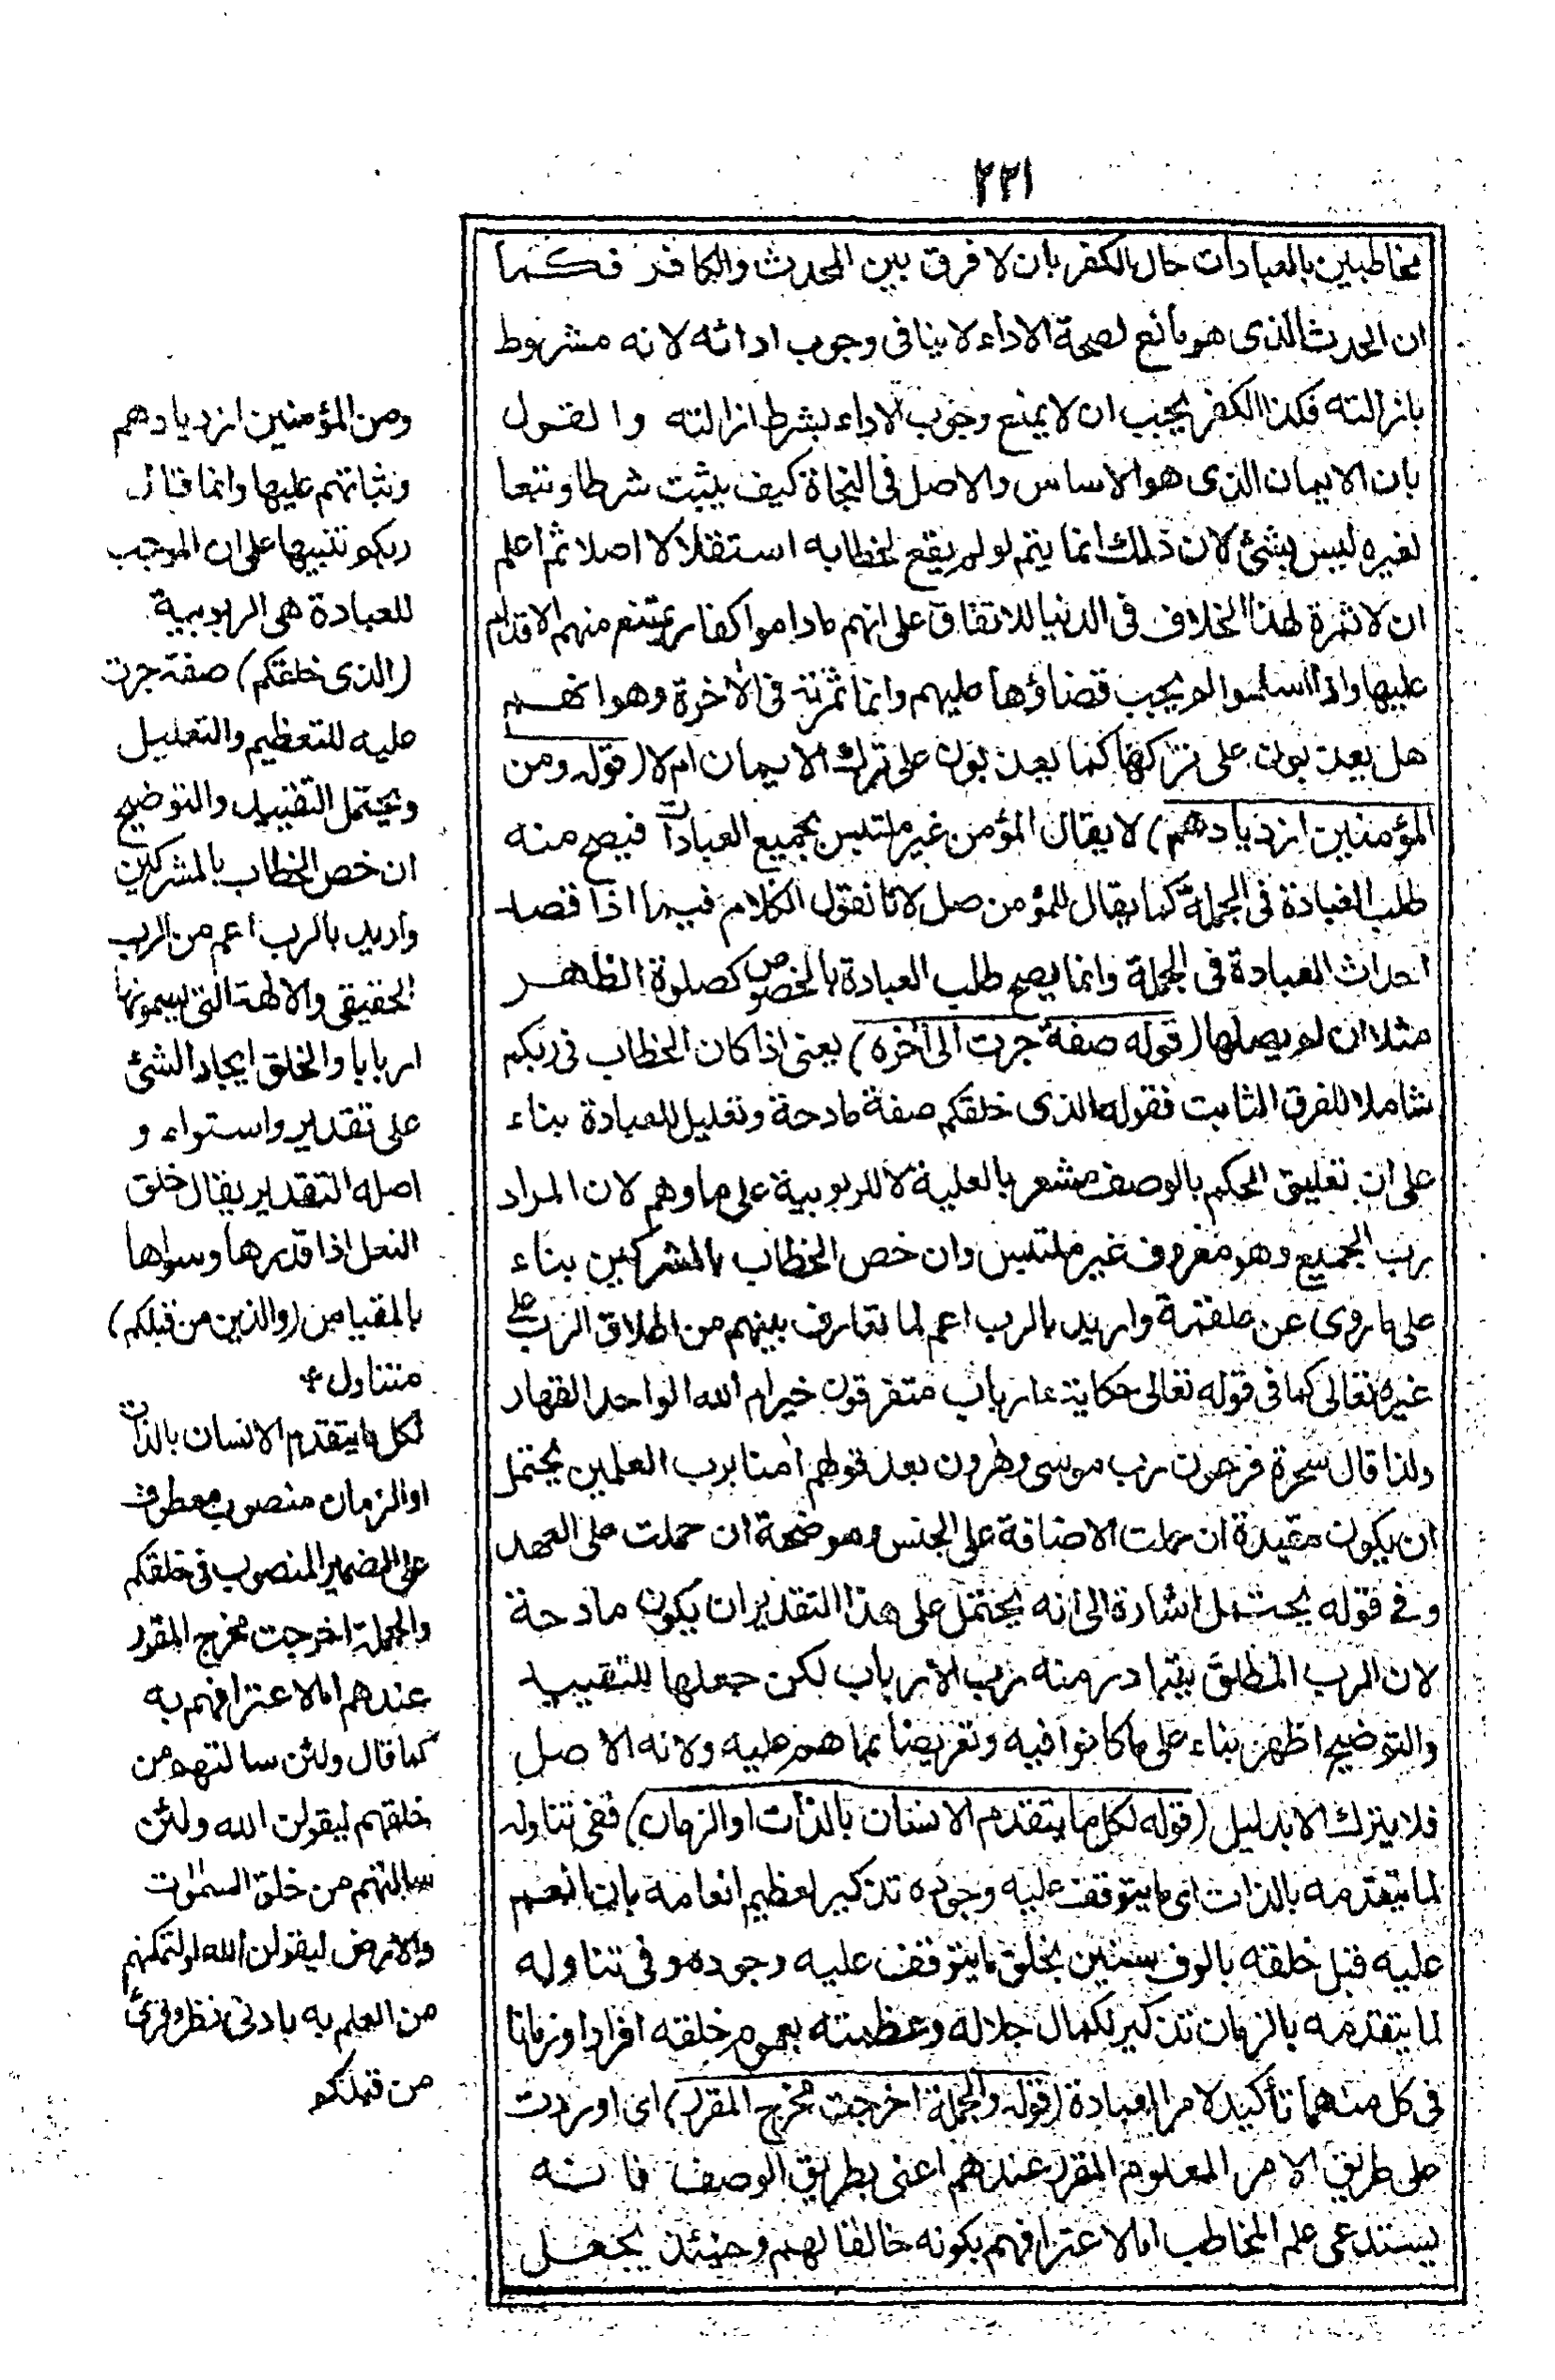 ٢٢١
مخاطبين بالعبادات حال الكفر بان لا فرق بين المحدث والكافر فكما
ان الحدث الذى هو مانع لصحة الاداء لا ينافى وجوب ادائه لانه مشروط
بازالته فكذا الكفر يجب ان لا يمنع وجوب الاداء بشرط ازالته والقول
بان الايمان الذى هو الاساس والاصل فى النجاة كيف يثبت شرطا وتبعا
لغيره ليس بشئ لان ذلك انما يتم لو لم يقع الخطاب به استقلالا اصلا ثم اعلم
ان لا ثمرة لهذا الخلاف فى الدنيا للاتفاق على انهم ما داموا كفار يمتنع منهم الاقدام
عليها واذا اسلموا لم يجب قضاؤها عليهم وانما ثمرته فى الاخرة وهو انهم
هل يعذبون على تركها كما يعذبون على ترك الايمان ام لا (قوله ومن
المؤمنين ازديادهم) لا يقال المؤمن غير ملتبس بجميع العبادات فيصح منه
طلب العبادة فى الجملة كما يقال للمؤمن صل لانا نقول الكلام فيما اذا قصد
احداث العبادة فى الجملة وانما يصح طلب العبادة بالخصوص كصلوة الظهر
مثلا ان لم يصلها (قوله صفة جرت الى آخره) يعنى اذا كان الخطاب فى ربكم
شاملا للفرق الثابت فقوله الذى خلقكم صفة مادحة وتعليل للعبادة بناء
على ان تعليق الحكم بالوصف مشعر بالعلية لا للربوبية على ما وهم لان المراد
برب الجميع وهو معروف غير ملتبس وان خص الخطاب بالمشركين بناء
على ما روى عن علقمة واريد بالرب اعم لما تعارف بينهم من اطلاق الرب على
غيره تعالى كما فى قوله تعالى حكاية ءارباب متفرقون خير ام الله الواحد القهار
ولذا قال سحرة فرعون رب موسى وهرون بعد قولهم امنا برب العلمين يحتمل
ان يكون مقيدة ان حملت الاضافة على الجنس وموضحة ان حملت على العهد
وفى قوله يحتمل اشارة الى انه يحتمل على هذا التقدير ان يكون مادحة
لان الرب المطلق يتبادر منه رب الارباب لكن جعلها للتقييد
والتوضيح اظهر بناء على ما كانوا فيه وتعريضا بما هم عليه ولانه الاصل
فلا يترك الا بدليل (قوله لكل ما يتقدم الانسان بالذات او الزمان) ففى تناوله
لما يتقدمه بالذات اى ما يتوقف عليه وجوده تذكير لعظيم انعامه بان انعم
عليه قبل خلقه بالوف سنين بخلق ما يتوقف عليه وجوده وفى تناوله
لما يتقدمه بالزمان تذكير لكمال جلاله وعظمته بعموم خلقه افرادا وزمانا
فى كل منهما تأكيد لامر العبادة (قوله والجملة اخرجت مخرج المقرر) اى اوردت
على طريق الامر المعلوم المقرر عندهم اعنى بطريق الوصف فانه
يستدعى علم المخاطب اما لاعترافهم بكونه خالقا لهم وحينئذ يجعل
ومن المؤمنين ازديادهم
وثباتهم عليها وانما قال
ربكم تنبيها على ان الموجب
للعبادة هى الربوبية
(الذى خلقكم) صفة جرت
عليه للتعظيم والتعليل
ويحتمل التقييد والتوضيح
ان خص الخطاب بالمشركين
واريد بالرب اعم من الرب
الحقيقى والالهة التى يسمونها
اربابا والخلق ايجاد الشئ
على تقدير واستواء و
اصله التقدير يقال خلق
النعل اذا قدرها وسواها
بالمقياس (والذين من قبلكم)
متناول
لكل ما يتقدم الانسان بالذات
او الزمان منصوب معطوف
على الضمير المنصوب فى خلقكم
والجملة اخرجت مخرج المقرر
عندهم اما لاعترافهم به
كما قال ولئن سالتهم من
خلقهم ليقولن الله ولئن
سالتهم من خلق السموات
والارض ليقولن الله او لتمكنهم
من العلم به بادنى نظر وقرئ
من قبلكم